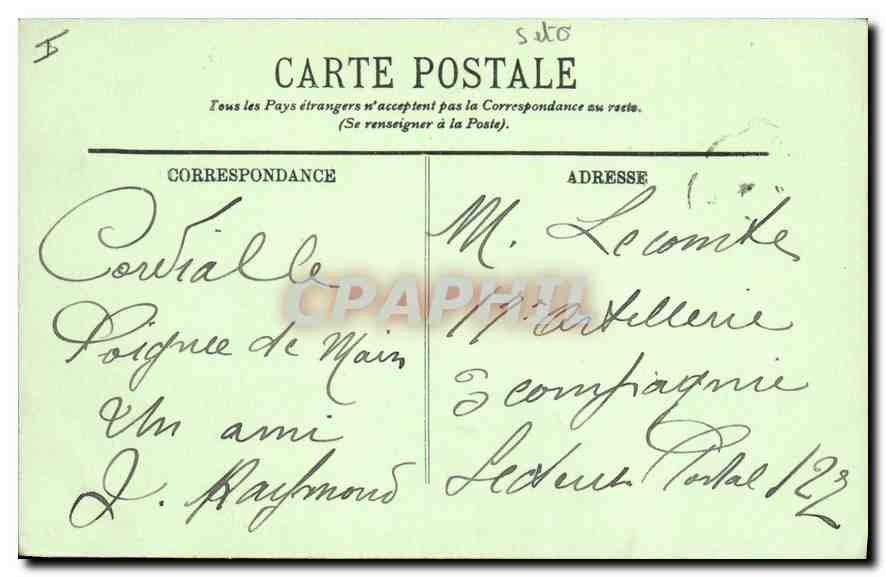 seto
CARTE POSTALE
Tous les Pays étrangers n'acceptent pas la Correspondance au recto.
(Se renseigner à la Poste).
CORRESPONDANCE
Cordialle
Poignee de Main
Un ami
J. Raymond
ADRESSE
M. Lecomte
19e artillerie
3 compagnie
Secteur Postal 122
CPAPHIL